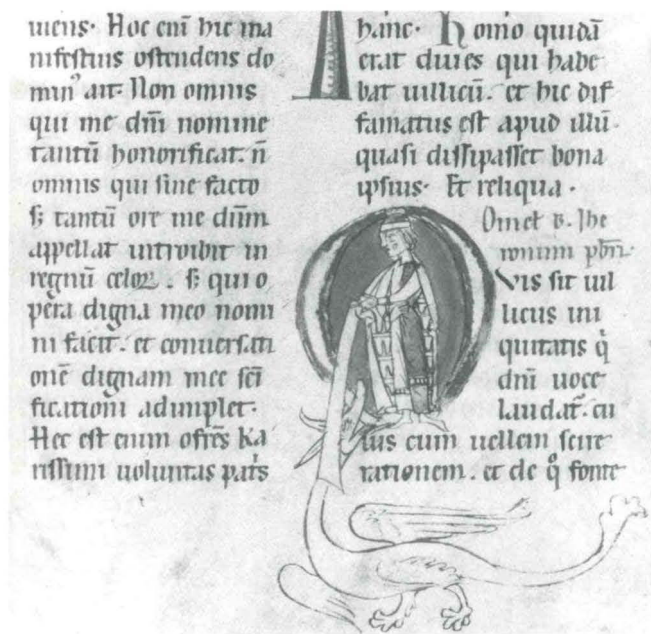 uiens. Hoc eni̅ hic ma
nifestius ostendens do
min᷒ ait. Non omnis
qui me dn̅i nomine
tantu̅ honorificat. n̅
omnis qui sine facto
s; tantu̅ ore me dn̅m
appellat introibit in
regnu̅ celoꝝ. s; qui o
pera digna meo nomi
ni facit. et conuersati
one̅ dignam mee sc̅i
ficationi adimplet.
Hec est enim ofr̅es ka
rissimi uoluntas pat̅s
hanc. Homo quida̅
erat diues qui habe
bat uillicu̅. et hic dif
famatus est apud illu̅.
quasi dissipasset bona
ipsius. Et reliqua.
Omel b. Ihe
ronimi pb̅ri.
Qvis sit uil
licus ini
quitatis q̇
dn̅i uoce
laudat̅. cu
ius cum uellem scire
rationem. et de q̊ fonte